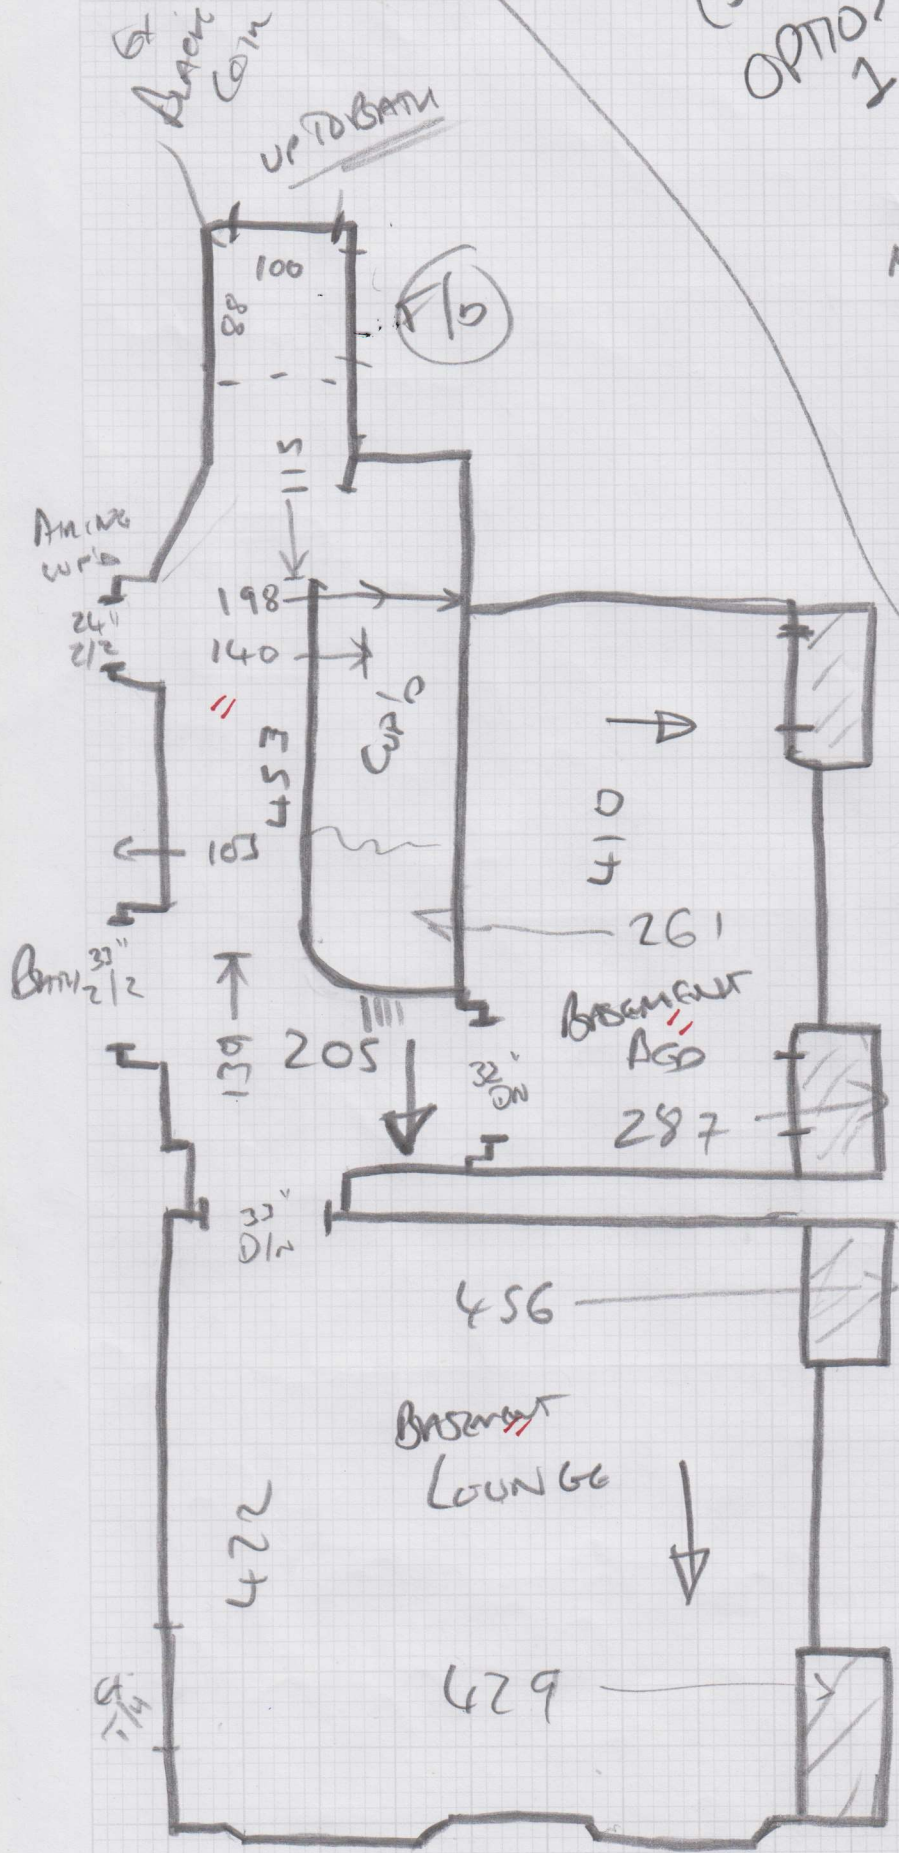 OPTIO
1
UP TO BATH
100
88
F/D
115
AIRING
CUP'D
24"
2/2
198
140
CUP'D
453
410
103
261
BATH 33"
2/2
139
205
32"
DN
BASEMENT
287
33"
D/N
456
BASEMENT
LOUNGE
422
429